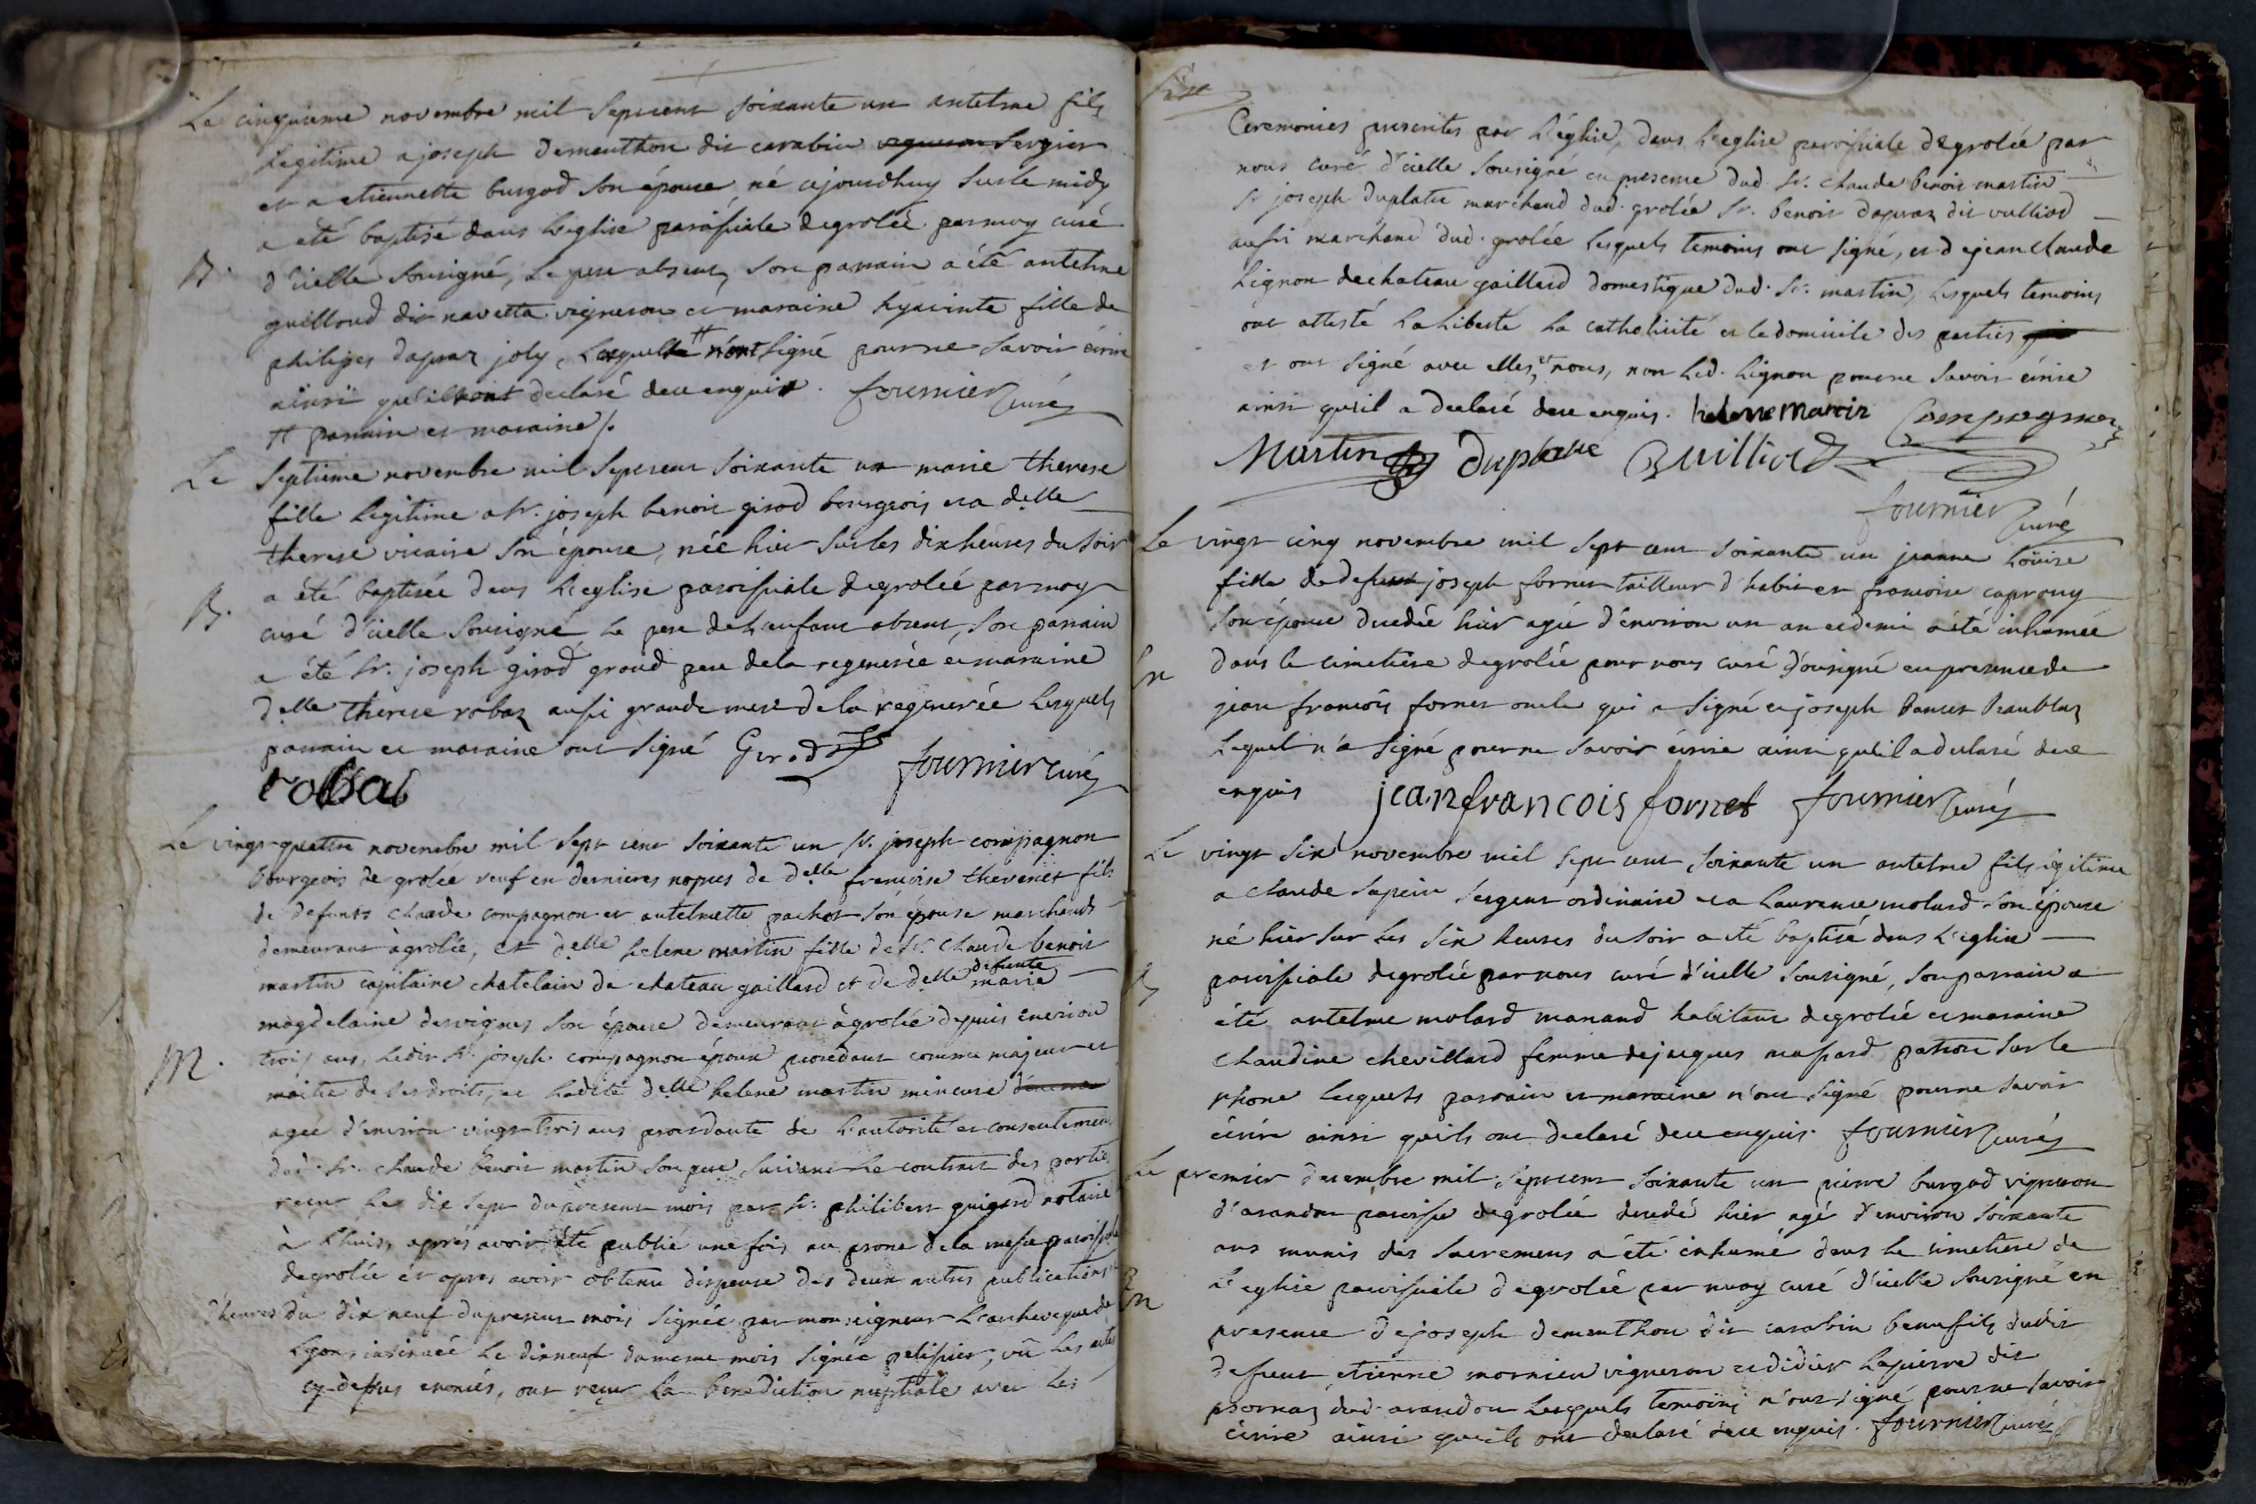 Le cinquieme novembre mil septcent soixante un antelme fils
legitime a joseph dementhon dit carabin vigneron sergier
et a etiennette burgod son épouse né cejourdhuy sur le midy
a eté baptisé dans léglise paroissiale de grolée par moy curé
B. d'icelle sousigné, le pere absent, son parrain a été antelme
guilloud dit navetta vigneron et maraine hyacinte fille de
philipes dapraz joly, lesquels # n'ont signé pour ne savoir écrire
ainsi qu'ils ont declaré de ce enquis. fournier curé
# parrain et maraine /.
Le septieme novembre mil septcent soixante un marie therese
fille legitime a sr. joseph benoit girod bourgeois et a delle
therese vicaire son épouse, née hier sur les dix heures du soir
a été baptisée dans l'eglise paroissiale de grolée par moy
B. curé d'icelle sousigné le pere de l'enfant absent, son parrain
a été sr. joseph girod grand pere de la regenerée et maraine
delle therese robaz aussi grande mere de la regenerée lesquels
parrain et maraine ont signé Girod fournier curé
robas
Le vingt quattre novembre mil sept cent soixante un sr. joseph compagnon
bourgeois de grolée veuf en dernieres nopces de delle francoise thevenet fils
de defunts claude compagnon et antelmette pachot son épouse marchands
demeurant à grolée, et delle helene martin fille de sr. claude benoit
martin capitaine chatelain de chateau gaillard et de delle defunte marie
magdelaine desvignes son épouse demeurant à grolée depuis environ
M. trois ans, ledit sr. joseph compagnon époux procedant comme majeur et
maitre de ses droits, et ladite delle helene martin mineure
agée d'environ vingt trois ans procedante de l'autorité et consentement
dud. sr. claude benoit martin son pere, suivant le contract des parties
recu le dix sept du present mois par sr. philibert guigard notaire
à lhuis, après avoir été publié une fois au prone de la messe paroissiale
de grolée et apres avoir obtenu dispense des deux autres publications
d'heures du dix neuf du present mois signée par monseigneur l'archeveque de
Lyon, insinuée le dix neuf du meme mois signée pelissier, vû les actes
cy dessus enoncés, ont reçu la benediction nuptiale avec les
ceremonies prescrites par l'église, dans l'eglise paroissiale de grolée par
nous curé d'icelle sousigné en presence dud. sr. claude benoit martin
sr joseph duplatre marchand dud. grolée sr. benoit dapraz dit vulliod
aussi marchand dud. grolée lesquels temoins ont signé, et de jean claude
lignon de chateau gaillard domestique dud. sr. martin, lesquels temoins
ont attesté la liberté la catholicité et le domicile des parties qui
et ont signé avec elles, et nous, non led. lignon pour ne savoir écrire
ainsi qu'il a declaré de ce enquis. helene martin Compagnon
Martin duplatre Vuilliod
fournier curé
Le vingt cinq novembre mil sept cent soixante un jeanne loüise
fille de defunt joseph fornet tailleur d'habit et francoise caprony
son épouse decedée hier agée d'environ un an et demi a été inhumée
En dans le cimetiere de grolée par nous curé sousigné en presence de
jean francois fornet oncle qui a signé et joseph
lequel n'a signé pour ne savoir écrire ainsi qu'il a declaré de ce
enquis jean francois fornet fournier curé
Le vingt six novembre mil sept cent soixante un antelme fils légitime
a claude sapein sergent ordinaire et a laurence molard son épouse
né hier sur les six heures du soir a été baptisé dans l'eglise
B paroissiale de grolée par nous curé d'icelle sousigné, son parrain a
été antelme molard manand habitant de grolée et maraine
claudine chevillard femme de jacques massard patron sur le
rhone lesquels parrain et maraine n'ont signé pour ne savoir
écrire ainsi qu'ils ont declaré de ce enquis. fournier curé
Le premier decembre mil septcent soixante un pierre burgod vigneron
d'arandon paroisse de grolée decedé hier agé d'environ soixante
ans munis des sacremens a été inhumé dans le cimetiere de
En l'eglise paroissiale de grolée par moy curé d'icelle sousigné en
presence de joseph dementhon dit carabin beaufils dudit
defunt, etienne mornieu vigneron et didier lapierre dit
dud. arandon lesquels temoins n'ont signé pour ne savoir
écrire ainsi qu'ils ont declaré de ce enquis. fournier curé